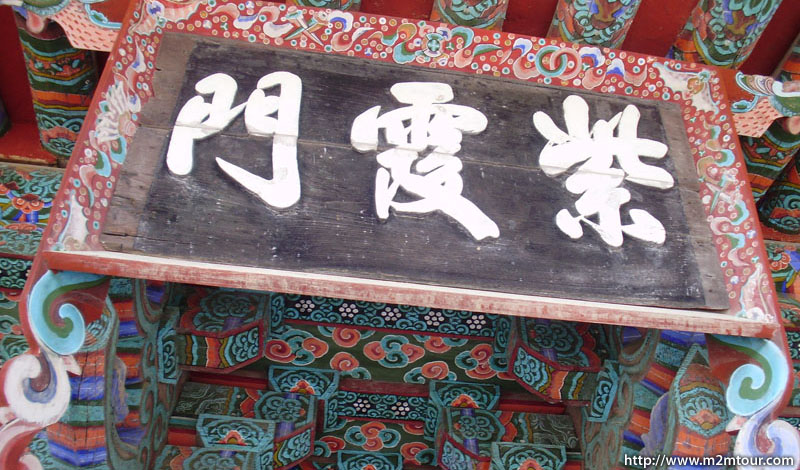 紫霞門
http://www.m2mtour.com